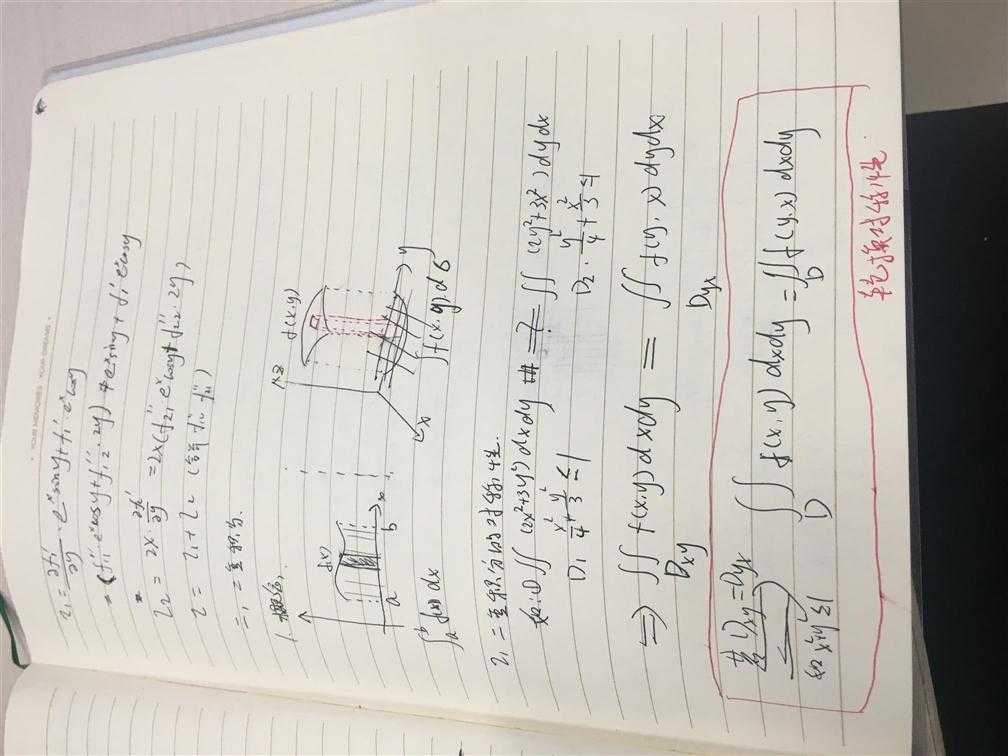 YOUR MEMORIES YOUR DREAMS
I₁ = ∂f₁'/∂y · eˣsiny + f₁' · eˣcosy
= (f₁₁'' eˣcosy + f₁₂'' · 2y) eˣsiny + f₁' eˣcosy
I₂ = 2x ∂f₂'/∂y = 2x(f₂₁'' eˣcosy + f₂₂'' · 2y)
I = I₁ + I₂
二、二重积分
1. 概念
f(x)
a
b
x
∫ₐᵇ f(x) dx
z
f(x,y)
x
y
∫∫ f(x,y) dσ
2、二重积分的对称性
如:① ∬ (2x²+3y²) dxdy =?= ∬ (2y²+3x²) dydx
D₁ x²/4 + y²/3 ≤ 1
D₂ · y²/4 + x²/3 ≤ 1
⇒ ∬ f(x,y) dxdy = ∬ f(y,x) dydx
Dxy
Dyx
若Dxy=Dyx
∬ f(x,y) dxdy = ∬ f(y,x) dxdy
D
D
x²+y²≤1
轮换对称性